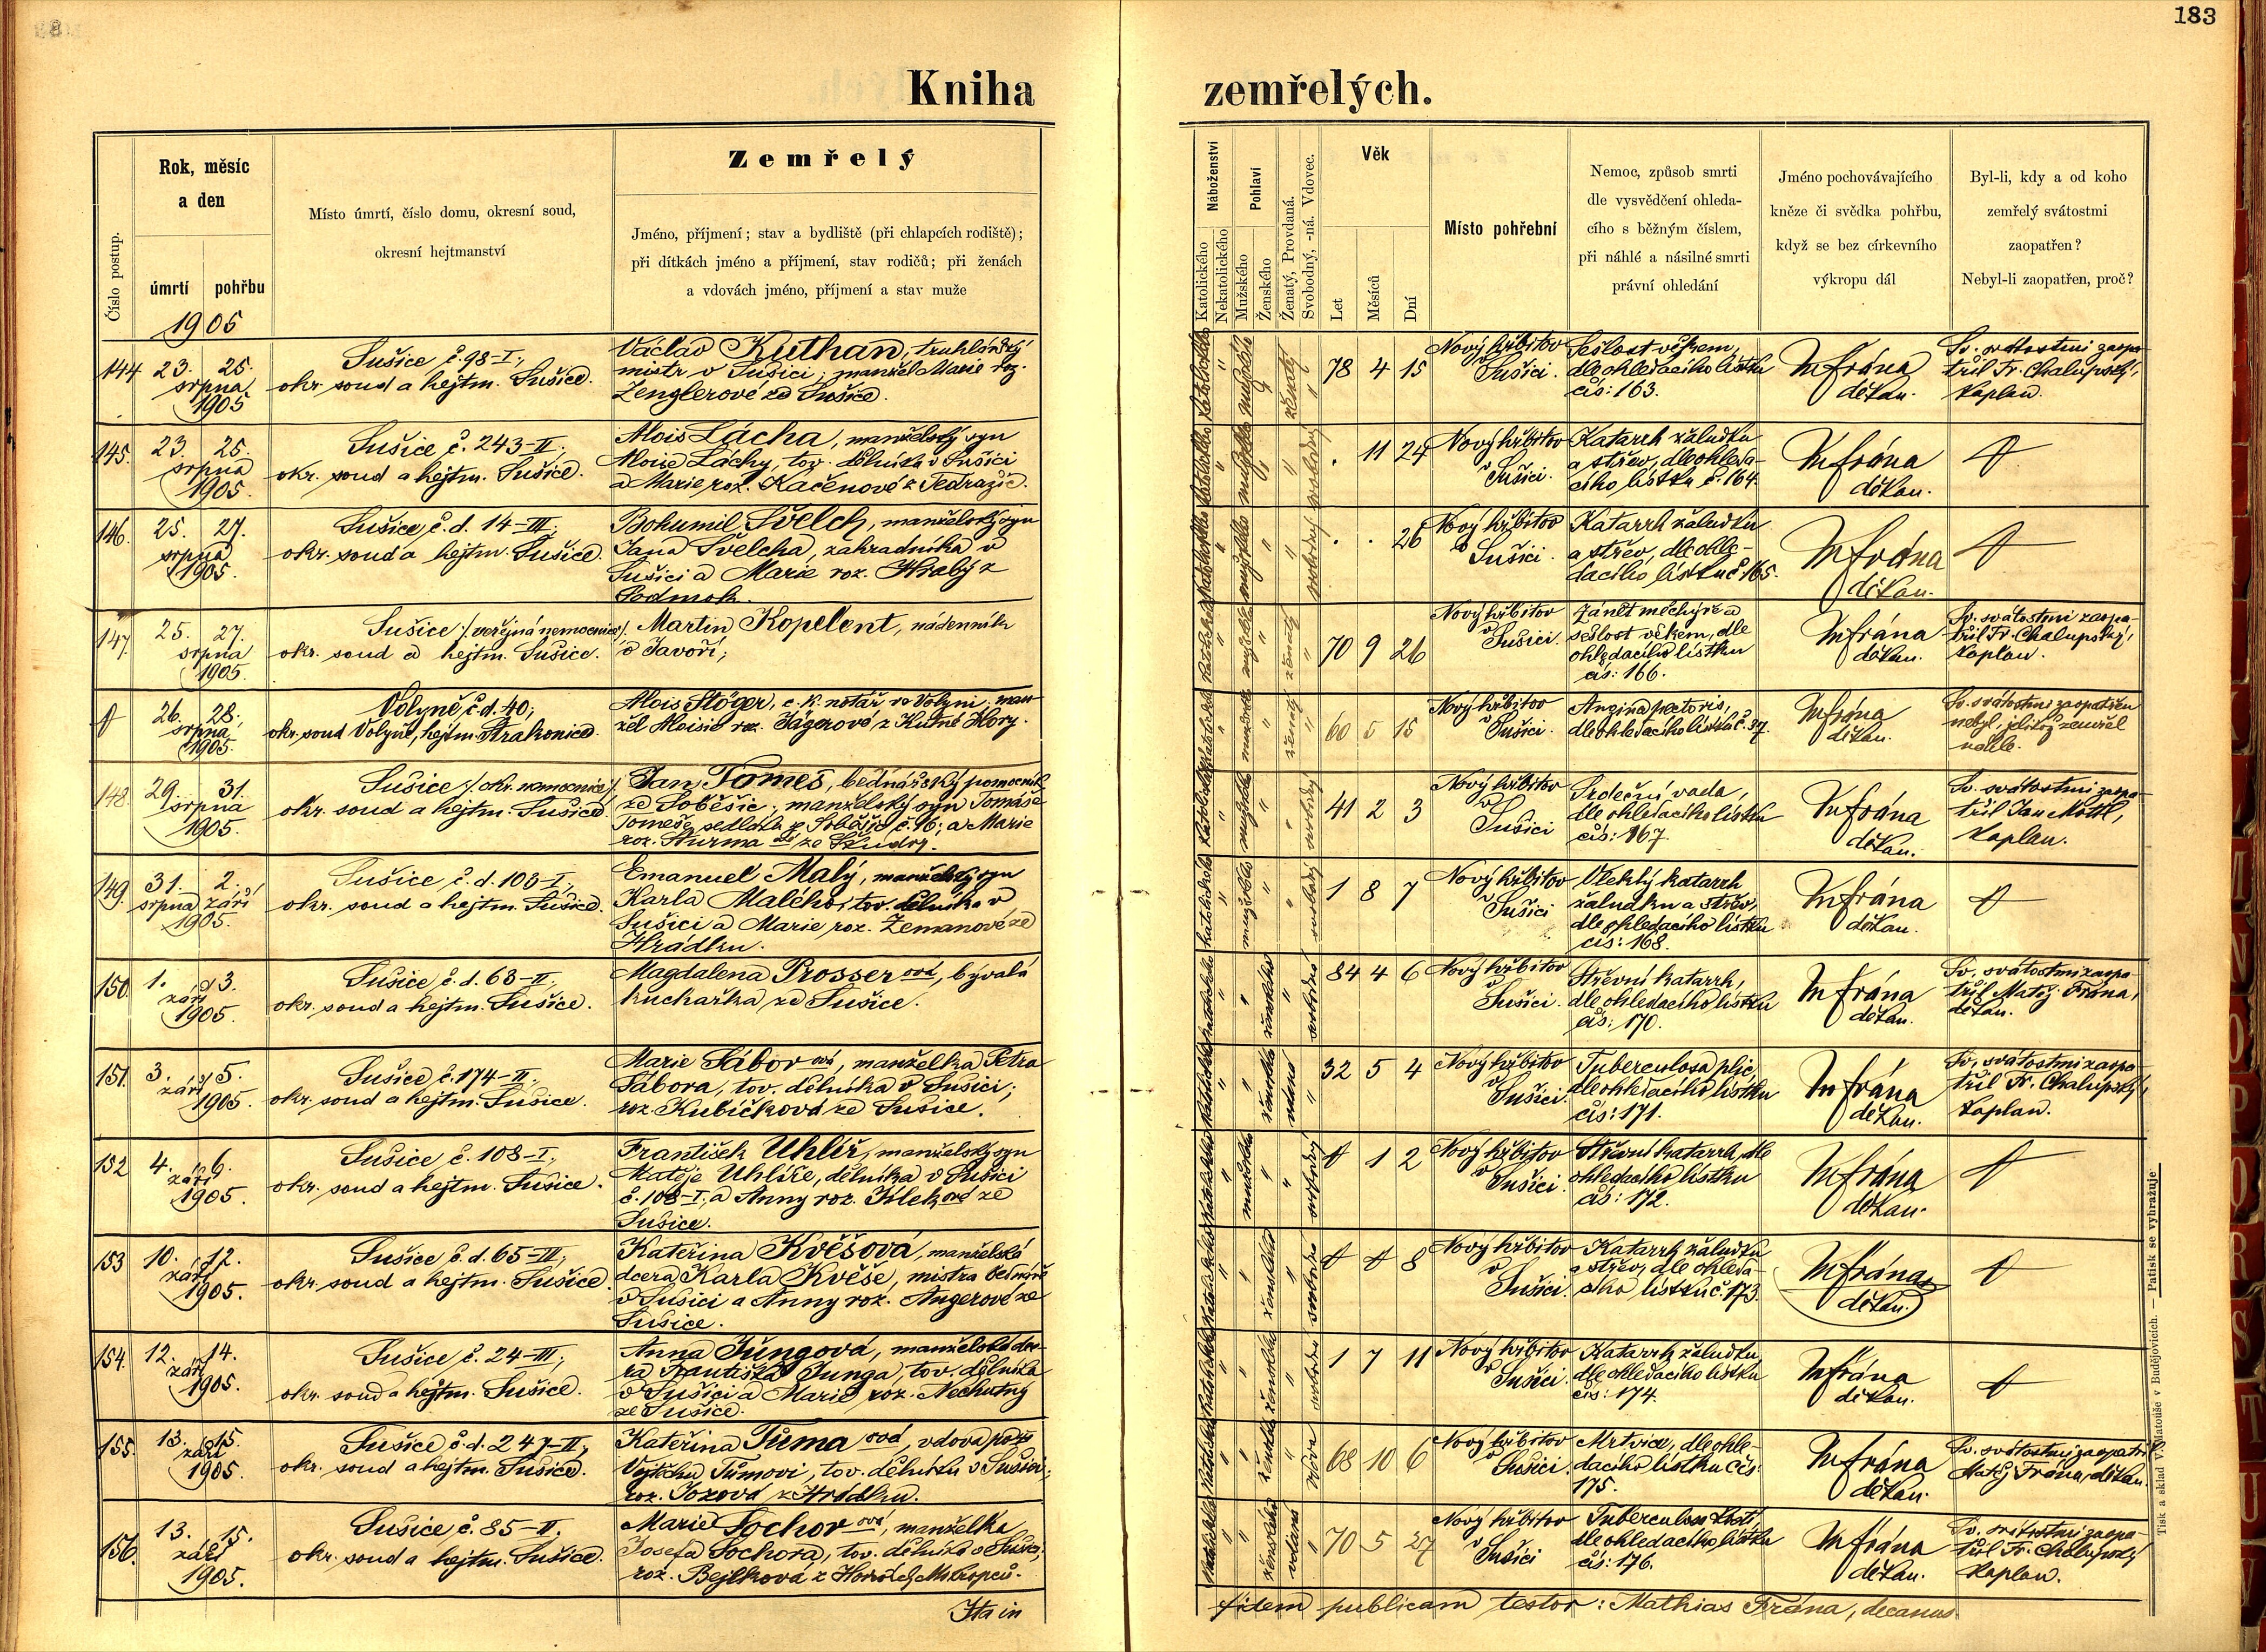 183
Kniha zemřelých.
Číslo postup.
Rok, měsíc
a den
úmrtí
pohřbu
Místo úmrtí, číslo domu, okresní soud,
okresní hejtmanství
Zemřelý
Jméno, příjmení; stav a bydliště (při chlapcích rodiště);
při dítkách jméno a příjmení, stav rodičů; při ženách
a vdovách jméno, příjmení a stav muže
Náboženství
Katolického
Nekatolického
Pohlaví
Mužského
Ženského
Ženatý, Provdaná.
Svobodný, -ná. Vdovec.
Věk
Let
Měsíců
Dní
Místo pohřební
Nemoc, způsob smrti
dle vysvědčení ohleda-
cího s běžným číslem,
při náhlé a násilné smrti
právní ohledání
Jméno pochovávajícího
kněze či svědka pohřbu,
když se bez církevního
výkropu dál
Byl-li, kdy a od koho
zemřelý svátostmi
zaopatřen?
Nebyl-li zaopatřen, proč?
1905
144 23. 25.
srpna
1905
Sušice č. 98-I.;
okr. soud a hejtm. Sušice.
Václav Kuthan, truhlářský
mistr v Sušici; manžel Marie roz.
Zenglerové ze Sušice.
katolického mužského ženatý
78 4 15
Nový hřbitov
v Sušici.
Sešlost věkem,
dle ohledacího lístku
čís: 163.
M Frána
děkan.
Sv. svátostmi zaopa-
třil Fr. Chalupský,
kaplan.
145. 23. 25.
srpna
1905.
Sušice č. 243-II;
okr. soud a hejtm. Sušice.
Alois Lácha, manželský syn
Aloise Láchy, tov. dělníka v Sušici
a Marie roz. Kačenové z Sedražic.
katolického mužského svobodný
. 11 24
Nový hřbitov
v Sušici.
Katarrh žaludku
a střev, dle ohleda-
cího lístku č. 164.
M Frána
děkan.
146. 25. 27.
srpna
1905.
Sušice č. d. 14-III;
okr. soud a hejtm. Sušice.
Bohumil Švelch, manželský syn
Jana Švelcha, zahradníka v
Sušici a Marie roz. Hrabý z
Podmok.
katolického mužského svobodný
. . 26
Nový hřbitov
v Sušici.
Katarrh žaludku
a střev, dle ohle-
dacího lístku č. 165.
M Frána
děkan.
147. 25. 27.
srpna
1905.
Sušice /. veřejná nemocnice /.
okr. soud a hejtm. Sušice.
Martin Kopelent, nádenník
v Javoří;
katolického mužského ženatý
70 9 26
Nový hřbitov
v Sušici.
Zánět měchýře a
sešlost věkem, dle
ohledacího lístku
čís: 166.
M Frána
děkan.
Sv. svátostmi zaopa-
třil Fr. Chalupský,
kaplan.
26. 28.
srpna
1905.
Volyně č. d. 40;
okr. soud Volyně, hejtm. Strakonice.
Alois Stöger, c. k. notář ve Volyni; man-
žel Aloisie roz. Jägerové z Kutné Hory.
katolického mužského ženatý
60 5 15
Nový hřbitov
v Sušici.
Angina pectoris,
dle ohledacího lístku č. 37.
M Frána
děkan.
Sv. svátostmi zaopatřen
nebyl, jelikož zemřel
náhle.
148. 29. 31.
srpna
1905.
Sušice /. okr. nemocnice /.
okr. soud a hejtm. Sušice.
Jan Tomeš, bednářský pomocník
ze Soběšic; manželský syn Tomáše
Tomeše sedláka ze Soběšic č. 16; a Marie
roz. Sturma
katolického mužského svobodný
41 2 3
Nový hřbitov
v Sušici
Srdeční vada,
dle ohledacího lístku
čís: 167.
M Frána
děkan.
Sv. svátostmi zaopa-
třil Jan Mottl,
kaplan.
149. 31. 2.
srpna září
1905.
Sušice č. d. 103-I,
okr. soud a hejtm. Sušice.
Emanuel Malý, manželský syn
Karla Malého, tov. dělníka v
Sušici a Marie roz. Zemanové ze
Hrádku.
katolického mužského svobodný
1 8 7
Nový hřbitov
v Sušici
Vleklý katarrh
žaludku a střev,
dle ohledacího lístku
čís: 168.
M Frána
děkan.
150. 1. 3.
září
1905.
Sušice č. d. 63-II;
okr. soud a hejtm. Sušice.
Magdalena Prosserová, bývalá
kuchařka ze Sušice.
katolického ženského svobodná
84 4 6
Nový hřbitov
v Sušici.
Střevní katarrh,
dle ohledacího lístku
čís: 170.
M Frána
děkan.
Sv. svátostmi zaopa-
třil Matěj Frána,
děkan.
151. 3. 5.
září
1905.
Sušice, č. 174-II;
okr. soud a hejtm. Sušice.
Marie Sáborová, manželka Petra
Sábora, tov. dělníka v Sušici;
roz. Kubíčková ze Sušice.
katolického ženského vdaná
32 5 4
Nový hřbitov
v Sušici.
Tuberculosa plic,
dle ohledacího lístku
čís: 171.
M Frána
děkan.
Sv. svátostmi zaopa-
třil Fr. Chalupský,
kaplan.
152 4. 6.
září
1905.
Sušice č. 108-I;
okr. soud a hejtm. Sušice.
František Uhlíř, manželský syn
Matěje Uhlíře, dělníka v Sušici
č. 108-I, a Anny roz. ze
Sušice.
katolického mužského svobodný
1 2
Nový hřbitov
v Sušici.
Střevní katarrh, dle
ohledacího lístku
čís: 172.
M Frána
děkan.
153 10. 12.
září
1905.
Sušice č. d. 65-III;
okr. soud a hejtm. Sušice.
Kateřina Kvěšová, manželská
dcera Karla Kvěše, mistra bednáře
v Sušici a Anny roz. Angerové ze
Sušice.
katolického ženského svobodná
8
Nový hřbitov
v Sušici.
Katarrh žaludku
a střev, dle ohleda-
cího lístku č. 173.
M Frána
děkan.
154. 12. 14.
září
1905.
Sušice č. 24-III;
okr. soud a hejtm. Sušice.
Anna Jungová, manželská dce-
ra Františka Junga, tov. dělníka
v Sušici a Marie roz. Nechutný
ze Sušice.
katolického ženského svobodná
1 7 11
Nový hřbitov
v Sušici.
Katarrh žaludku,
dle ohledacího lístku
čís: 174.
M Frána
děkan.
155. 13. 15.
září
1905.
Sušice č. d. 247-II;
okr. soud a hejtm. Sušice.
Kateřina Tůmaová, vdova po
Vojtěchu Tůmovi, tov. dělníku v Sušici;
roz. Jozová z Hrádku.
katolického ženského vdova
68 10 6
Nový hřbitov
v Sušici.
Mrtvice, dle ohle-
dacího lístku čís:
175.
M Frána
děkan.
Sv. svátostmi zaopatřil
Matěj Frána, děkan.
156. 13. 15.
září
1905.
Sušice č. 85-II;
okr. soud a hejtm. Sušice.
Marie Sochorová, manželka
Josefa Sochora, tov. dělníka v Sušici,
roz. Bejlková z
katolického ženského vdaná
70 5 27
Nový hřbitov
v Sušici
Tuberculosa
dle ohledacího lístku
čís: 176.
M Frána
děkan.
Sv. svátostmi zaopa-
třil Fr. Chalupský
kaplan.
Ita in fidem publicam testor: Mathias Frána, decanus
Tisk a sklad V. Matouše v Budějovicích. — Patisk se vyhražuje